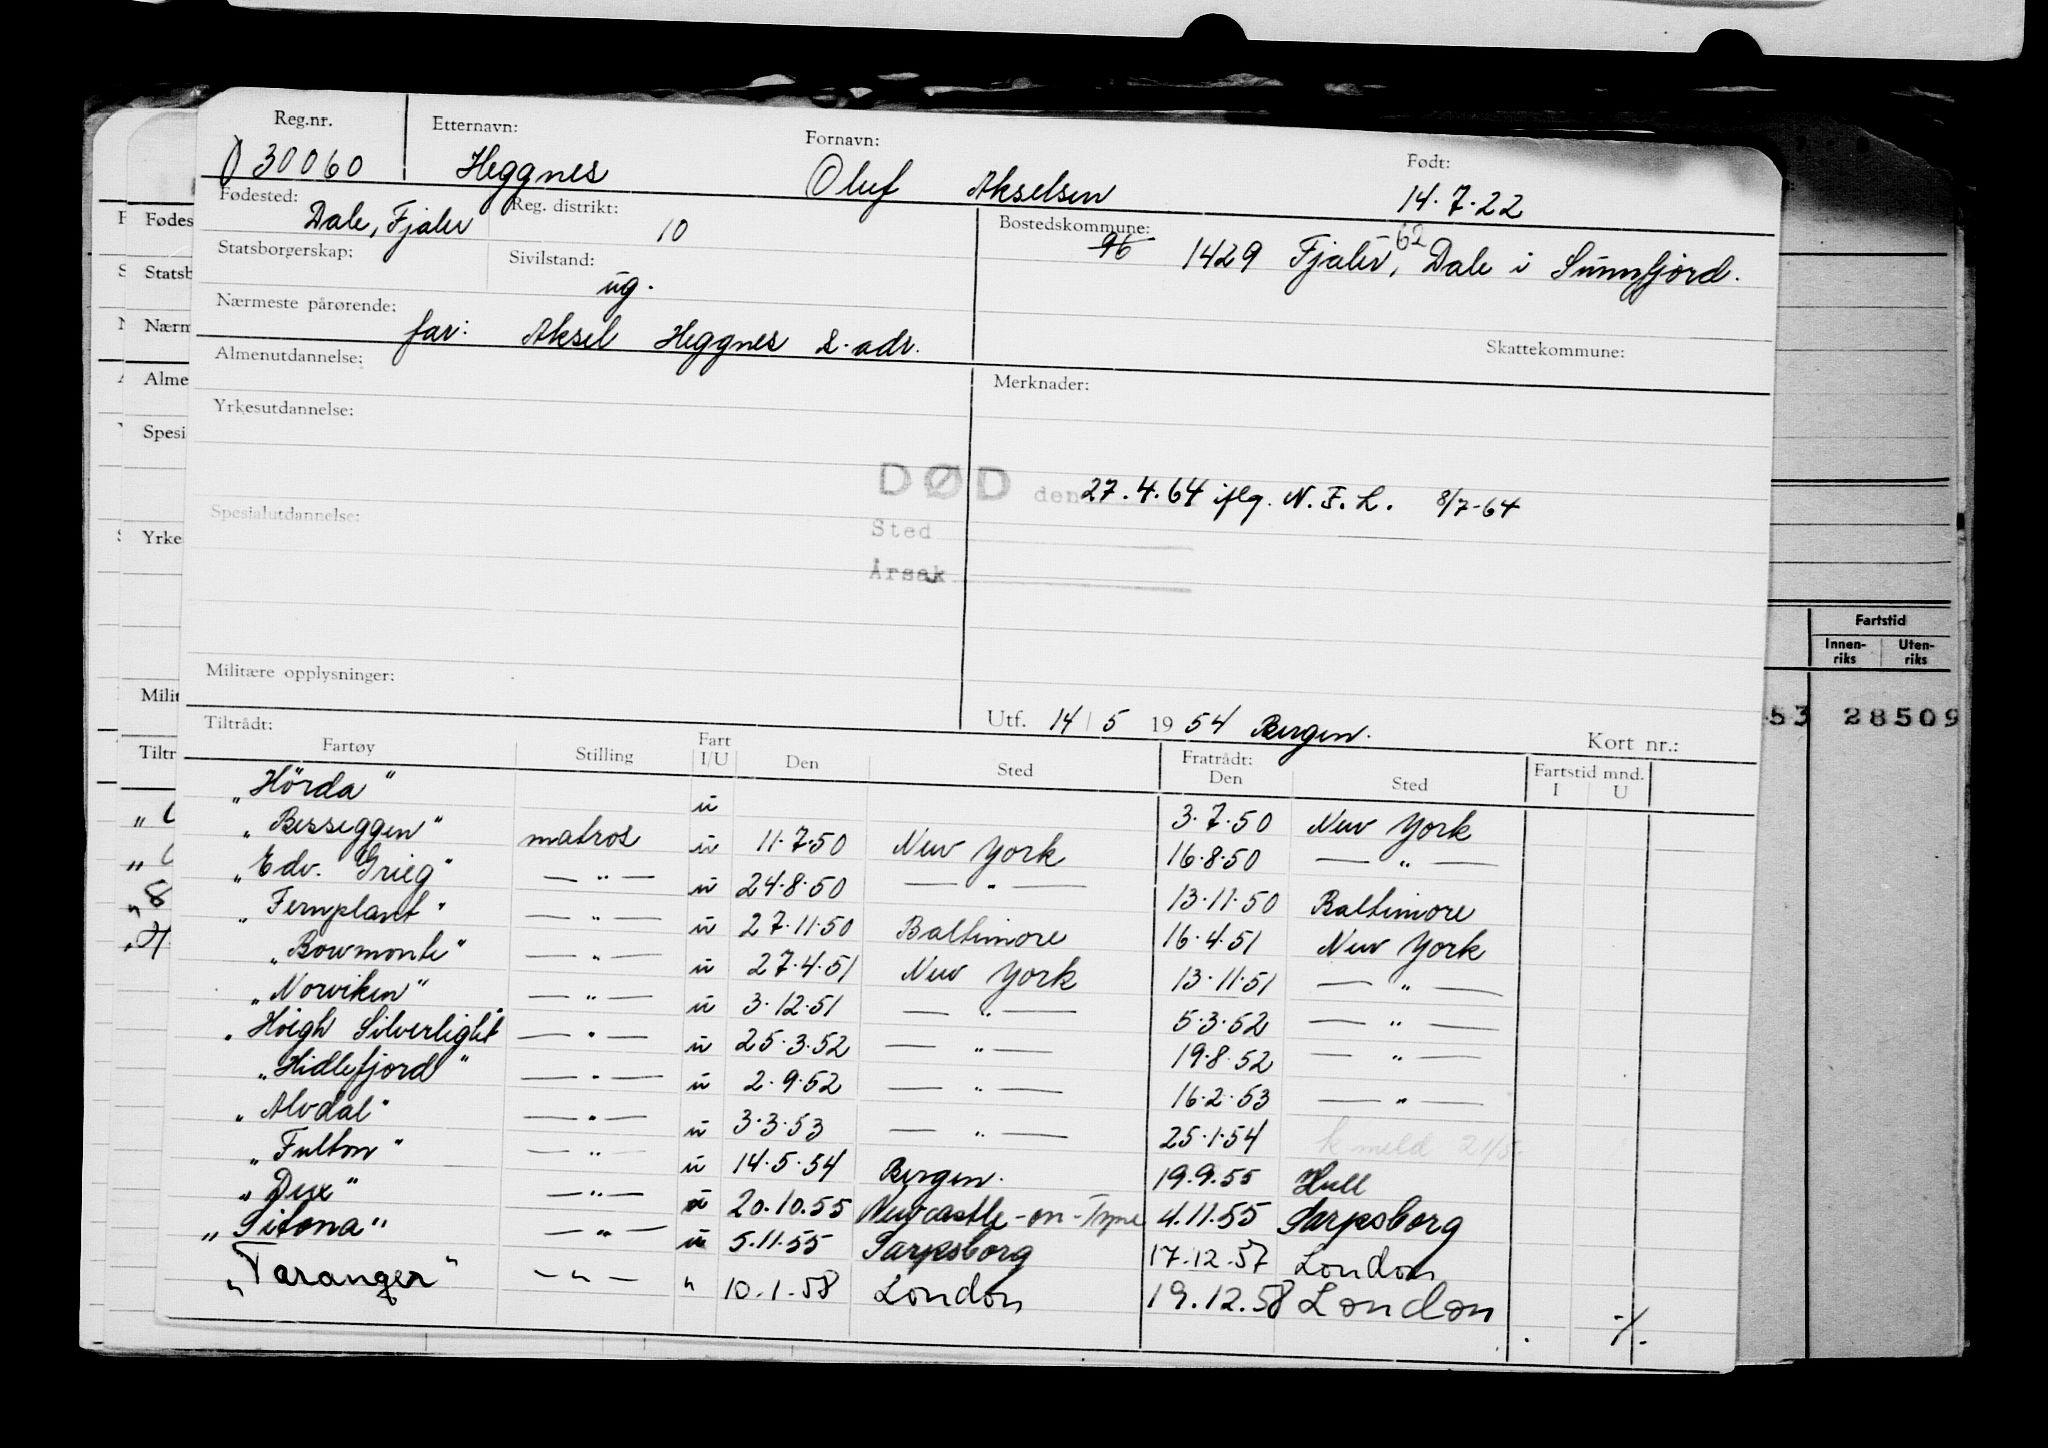 Reg.nr. Etternavn: Fornavn: Født:
30060 Heggnes Oluf Akselsen 14.7.22
Fødested: Dale, Fjaler Reg. distrikt: 10 Bostedskommune: 96 1429 Fjaler, 62 Dale i Sunnfjord.
Statsborgerskap: Sivilstand: ug.
Nærmeste pårørende: far: Aksel Heggnes s. adr. Skattekommune:
Almenutdannelse: Merknader:
Yrkesutdannelse:
DØD den 27.4.64 iflg. N.F.L. 8/7-64
Spesialutdannelse: Sted
Årsak
Militære opplysninger:
Utf. 14/5 1954 Bergen. Kort nr.:
Tiltrådt: Fratrådt: Fartstid mnd.
Fartøy Stilling Fart I/U Den Sted Den Sted I U
"Hörda" u 3.7.50 New York
"Besseggen" matros u 11.7.50 New York 16.8.50 — " —
"Edv. Grieg" — " — u 24.8.50 — " — 13.11.50 Baltimore
"Fernplant" — " — u 27.11.50 Baltimore 16.4.51 New York
"Bowmonte" — " — u 27.4.51 New York 13.11.51 — " —
"Norviken" — " — u 3.12.51 — " — 5.3.52 — " —
"Höigh Silverlight" — " — u 25.3.52 — " — 19.8.52 — " —
"Hidlefjord" — " — u 2.9.52 — " — 16.2.53 — " —
"Alvdal" — " — u 3.3.53 — " — 25.1.54 k meld
"Fulton" — " — u 14.5.54 Bergen. 19.9.55 Hull
"Dux" — " — u 20.10.55 Newcastle-on-Tyne 4.11.55 Sarpsborg
"Sitona" — " — u 5.11.55 Sarpsborg 17.12.57 London
"Taranger" — " — " 10.1.58 London 19.12.58 London
./.
Fødes
Statsb
Nærm
Alme
Spesi
Yrke
Milit
Tiltr
Fartstid
Innen-riks Uten-riks
53 28509